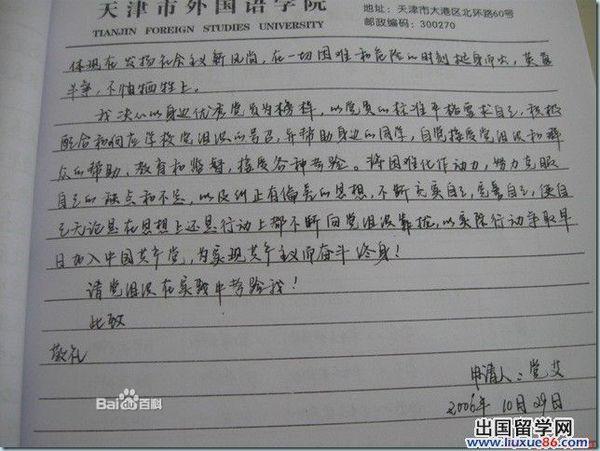 天津市外国语学院
TIANJIN FOREIGN STUDIES UNIVERSITY
地址：天津市大港区北环路60号
邮政编码：300270
体现在发扬社会主义新风尚，在一切困难和危险的时刻挺身而出，英勇
斗争，不怕牺牲上。
我决心以身边优秀党员为榜样，以党员的标准严格要求自己，积极
配合和响应学校党组织的号召，并帮助身边的同学，自觉接受党组织和群
众的帮助、教育和监督，接受各种考验。将困难化作动力，努力克服
自己的缺点和不足，以及纠正有偏差的思想，不断充实自己，完善自己，使自
己无论是在思想上还是行动上都不断向党组织靠拢，以实际行动争取早
日加入中国共产党，为实现共产主义而奋斗终身！
请党组织在实践中考验我！
此致
敬礼
申请人：党艾
2006年10月29日
Bai百科
出国留学网
www.liuxue86.com